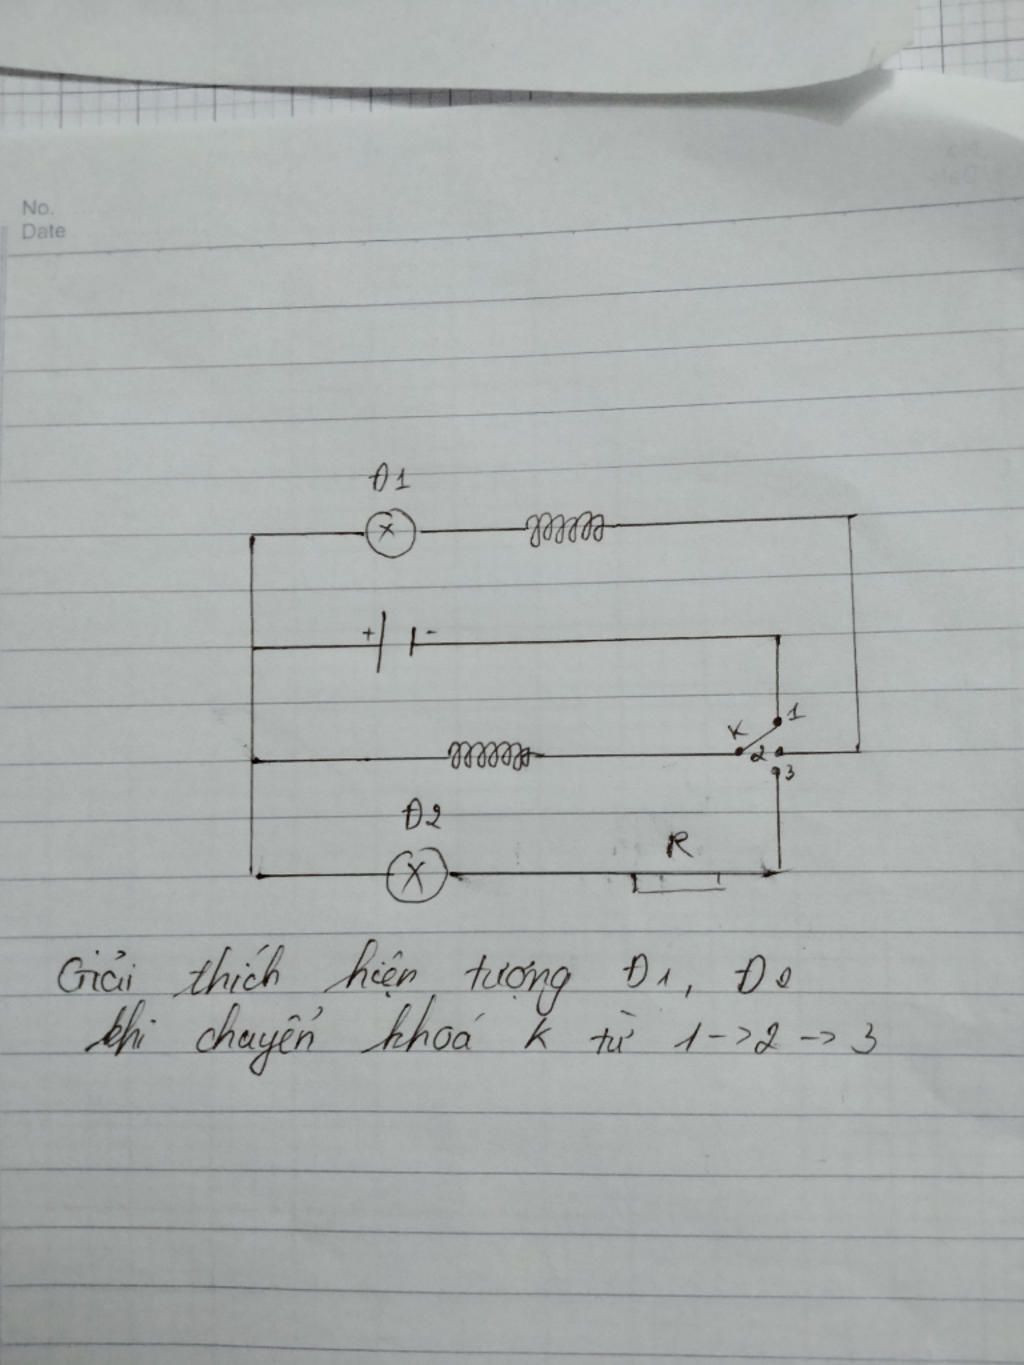 No.
Date
Đ1
+ -
1
K
2
3
Đ2
R
Giải thích hiện tượng Đ1, Đ2
khi chuyển khoá K từ 1->2->3